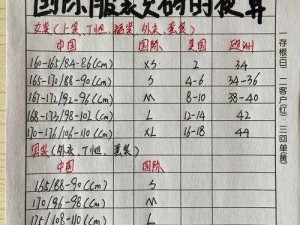 国际服装尺码的换算
女装(上装、T恤、棉袄、外衣、套装)
中国 国际 美国 欧洲
160-165/84-86(cm) XS 2 34
165-170/88-90(cm) S 4-6 34-36
167-172/92-96(cm) M 8-10 38-40
168-173/98-102(cm) L 12-14 42
170-176/106-110(cm) XL 16-18 44
男装(外衣、T恤、套装)
中国 国际
165/88-90(cm) S
170/96-98(cm) M
175/108-110(cm) L
一存根(白) 二客户(红) 三回单(黄)